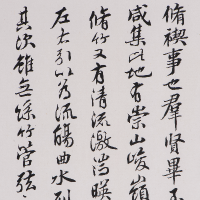 脩禊事也羣賢畢至
咸集此地有崇山峻嶺
脩竹又有清流激湍映
左右引以為流觴曲水列
其次雖無絲竹管弦之